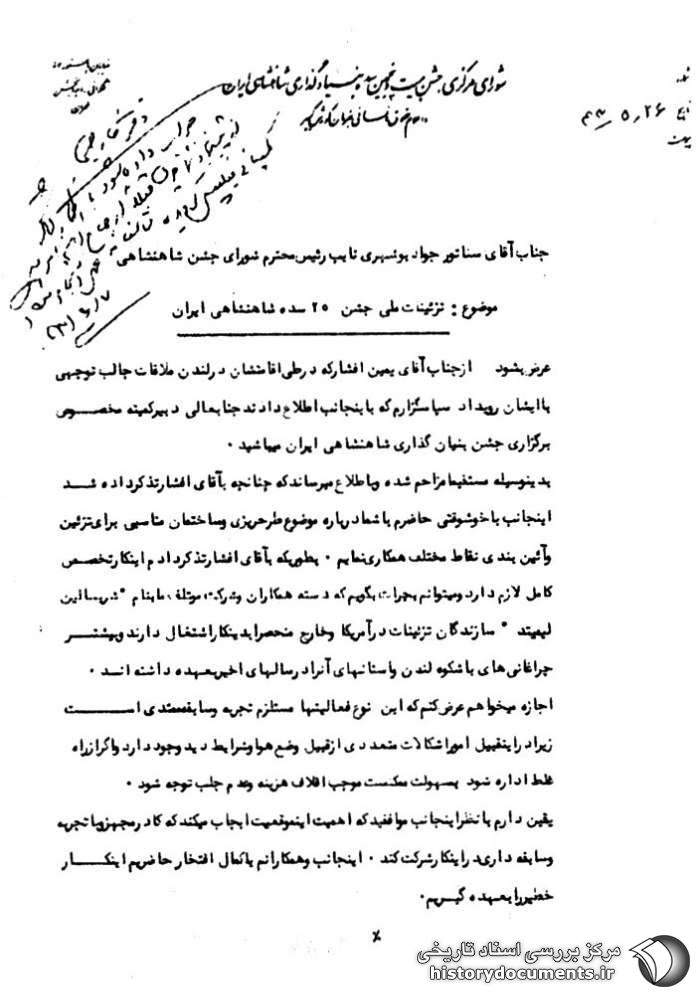 شورای مرکزی جشن بیست و پنجمین سده بنیادگذاری شاهنشاهی ایران
تاریخ ۴۳,۵,۲۶
دفتر
جواب داده شود
جناب آقای سناتور جواد بوشهری نایب رئیس محترم شورای جشن شاهنشاهی
موضوع : تزئینات ملی جشن ۲۵ سده شاهنشاهی ایران
عرض میشود ازجناب آقای یمین افشارکه درطی اقامتشان درلندن ملاقات جالب توجهی
با ایشان رویداد سپاسگزارم که با ینجانب اطلاع دادند جنابعالی دبیرکمیته مخصوص
برگزاری جشن بنیان گذاری شاهنشاهی ایران میباشید ۰
بدینوسیله مستقیما مزاحم شده وباطلاع میرساندکه چنانچه بآقای افشارتذکرداده شد
اینجانب باخوشوقتی حاضرم باشمادرباره موضوع طرحریزی وساختمان مناسبی برای تزئین
وآئین بندی نقاط مختلف همکاری نمایم ۰ بطوریکه بآقای افشارتذکردادم اینکارتخصص
کامل لازم دارد ومیتوانم بجرات بگویم که دسته همکاران وشرکت موتلف مابنام "
لیمیتد " سازندگان تزئینات درآمریکا وخارج منحصرابدینکاراشتغال دارند وبیشتر
چراغانی های باشکوه لندن واستانهای آنرادرسالهای اخیربعهده داشته اند ۰
اجازه میخواهم عرض کنم که این نوع فعالیتها مستلزم تجربه وسابقه ممتدی است
زیرادراینقبیل امور اشکالات متعددی ازقبیل وضع هوا وشرایط دید وجود دارد واگرازراه
غلط اداره شود بسهولت ممکنست موجب اتلاف هزینه وعدم جلب توجه شود ۰
یقین دارم بانظراینجانب موافقیدکه اهمیت اینموقعیت ایجاب میکندکه کادرمجهزوباتجربه
وسابقه داری دراینکارشرکت کند ۰ اینجانب وهمکارانم باکمال افتخار حاضریم اینکار
خطیررابعهده گیریم۰
مرکز بررسی اسناد تاریخی
historydocuments.ir